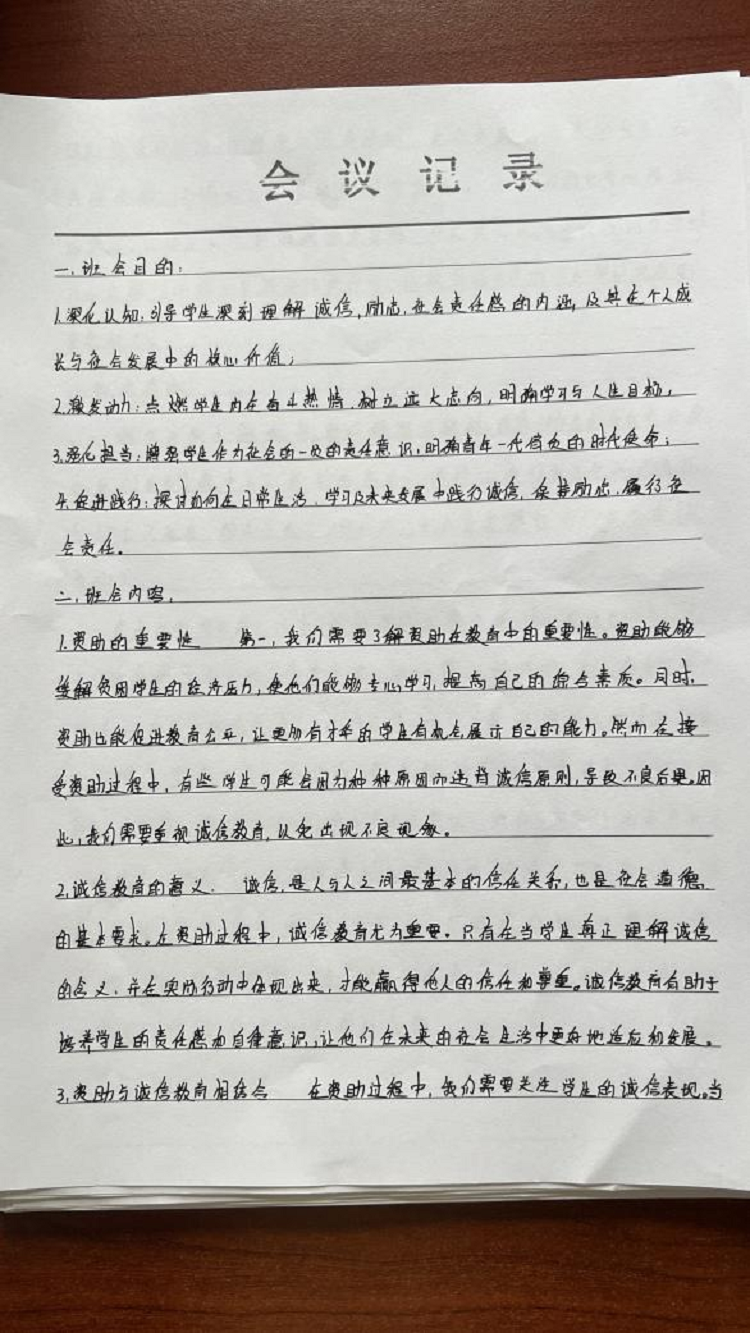 会议记录
一、班会目的:
1.深化认知:引导学生深刻理解诚信,励志,社会责任感的内涵,及其在个人成
长与社会发展中的核心价值;
2.激发动力:点燃学生内在奋斗热情,树立远大志向,明确学习与人生目标。
3.强化担当:增强学生作为社会的一员的责任意识,明确青年一代肩负的时代使命;
4.促进践行:探讨如何在日常生活、学习及未来发展中践行诚信,保持励志,履行社
会责任。
二、班会内容。
1.资助的重要性 第一,我们需要了解资助在教育中的重要性。资助能够
缓解贫困学生的经济压力,使他们能够专心学习,提高自己的综合素质。同时,
资助也能促进教育公平,让更多有才华的学生有机会展示自己的能力。然而在接
受资助过程中,有些学生可能会因为种种原因而违背诚信原则,导致不良后果。因
此,我们需要重视诚信教育,以免出现不良现象。
2.诚信教育的意义. 诚信,是人与人之间最基本的信任关系,也是社会道德
的基本要求。在资助过程中,诚信教育尤为重要。只有在当学生真正理解诚信
的含义,并在实际行动中体现出来,才能赢得他人的信任和尊重。诚信教育有助于
培养学生的责任感和自律意识,让他们在未来的社会生活中更好地适应和发展。
3.资助与诚信教育相结合 在资助过程中,我们需要关注学生的诚信表现。当